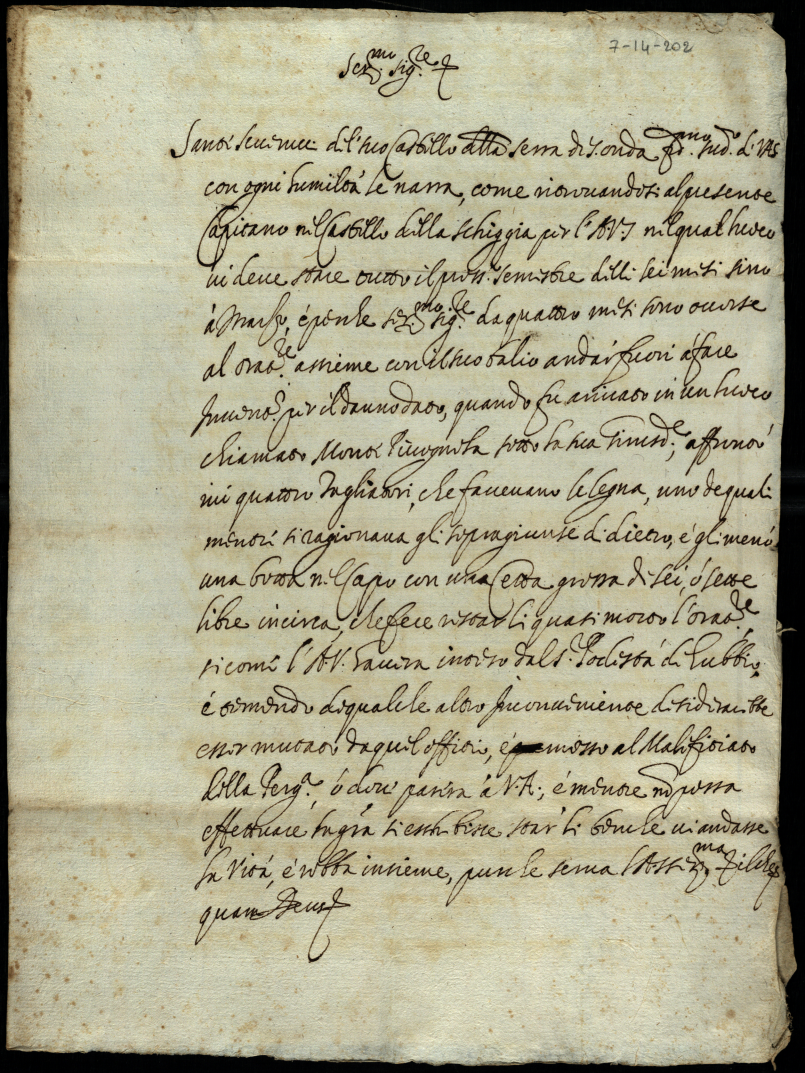 7-14-202
Ser.mo Sig.re
Sante del suo Castello della serra di S.onda fid.mo sud.o di VAS
con ogni humiltà le narra, come ritrovandosi al presente
Capitano nel Castello della Schiggia per l'AVS nel qual luoco
vi deve stare tutto il press. semestre delli sei mesi sino
à Marzo, e perche Ser.mo Sig.re da quattro mesi sono occorse
al orat.re assieme con il suo balio andar fuori à fare
Invent. per il dannodato, quando fu arrivato in un luoco
chiamato Monte sotto la sua Giurisd.e, affrontò
ivi quattro Tagliatori, che facevano le legna, uno de quali
mentre si ragionava gli sopragiunse di dietro, e gli menò
una botta nel Capo con una Cetta grossa di sei, ò sette
libre incirca, che fece restar li quasi morto l'orat.re
sicome l'AV. haverà inteso dal S.r Podestà di Gubbio,
e temendo di qualche altro Inconveniente desiderarebbe
esser mutato da quel offitio, e messo al Malefitiato
della Perg.a, ò dove parerà à V.A.; e mentre nō possa
effettuare la grā si essibisce star li benche vi andasse
la Vita, e robba insieme, purche serva l'A Ser.ma Il che
quam Deus